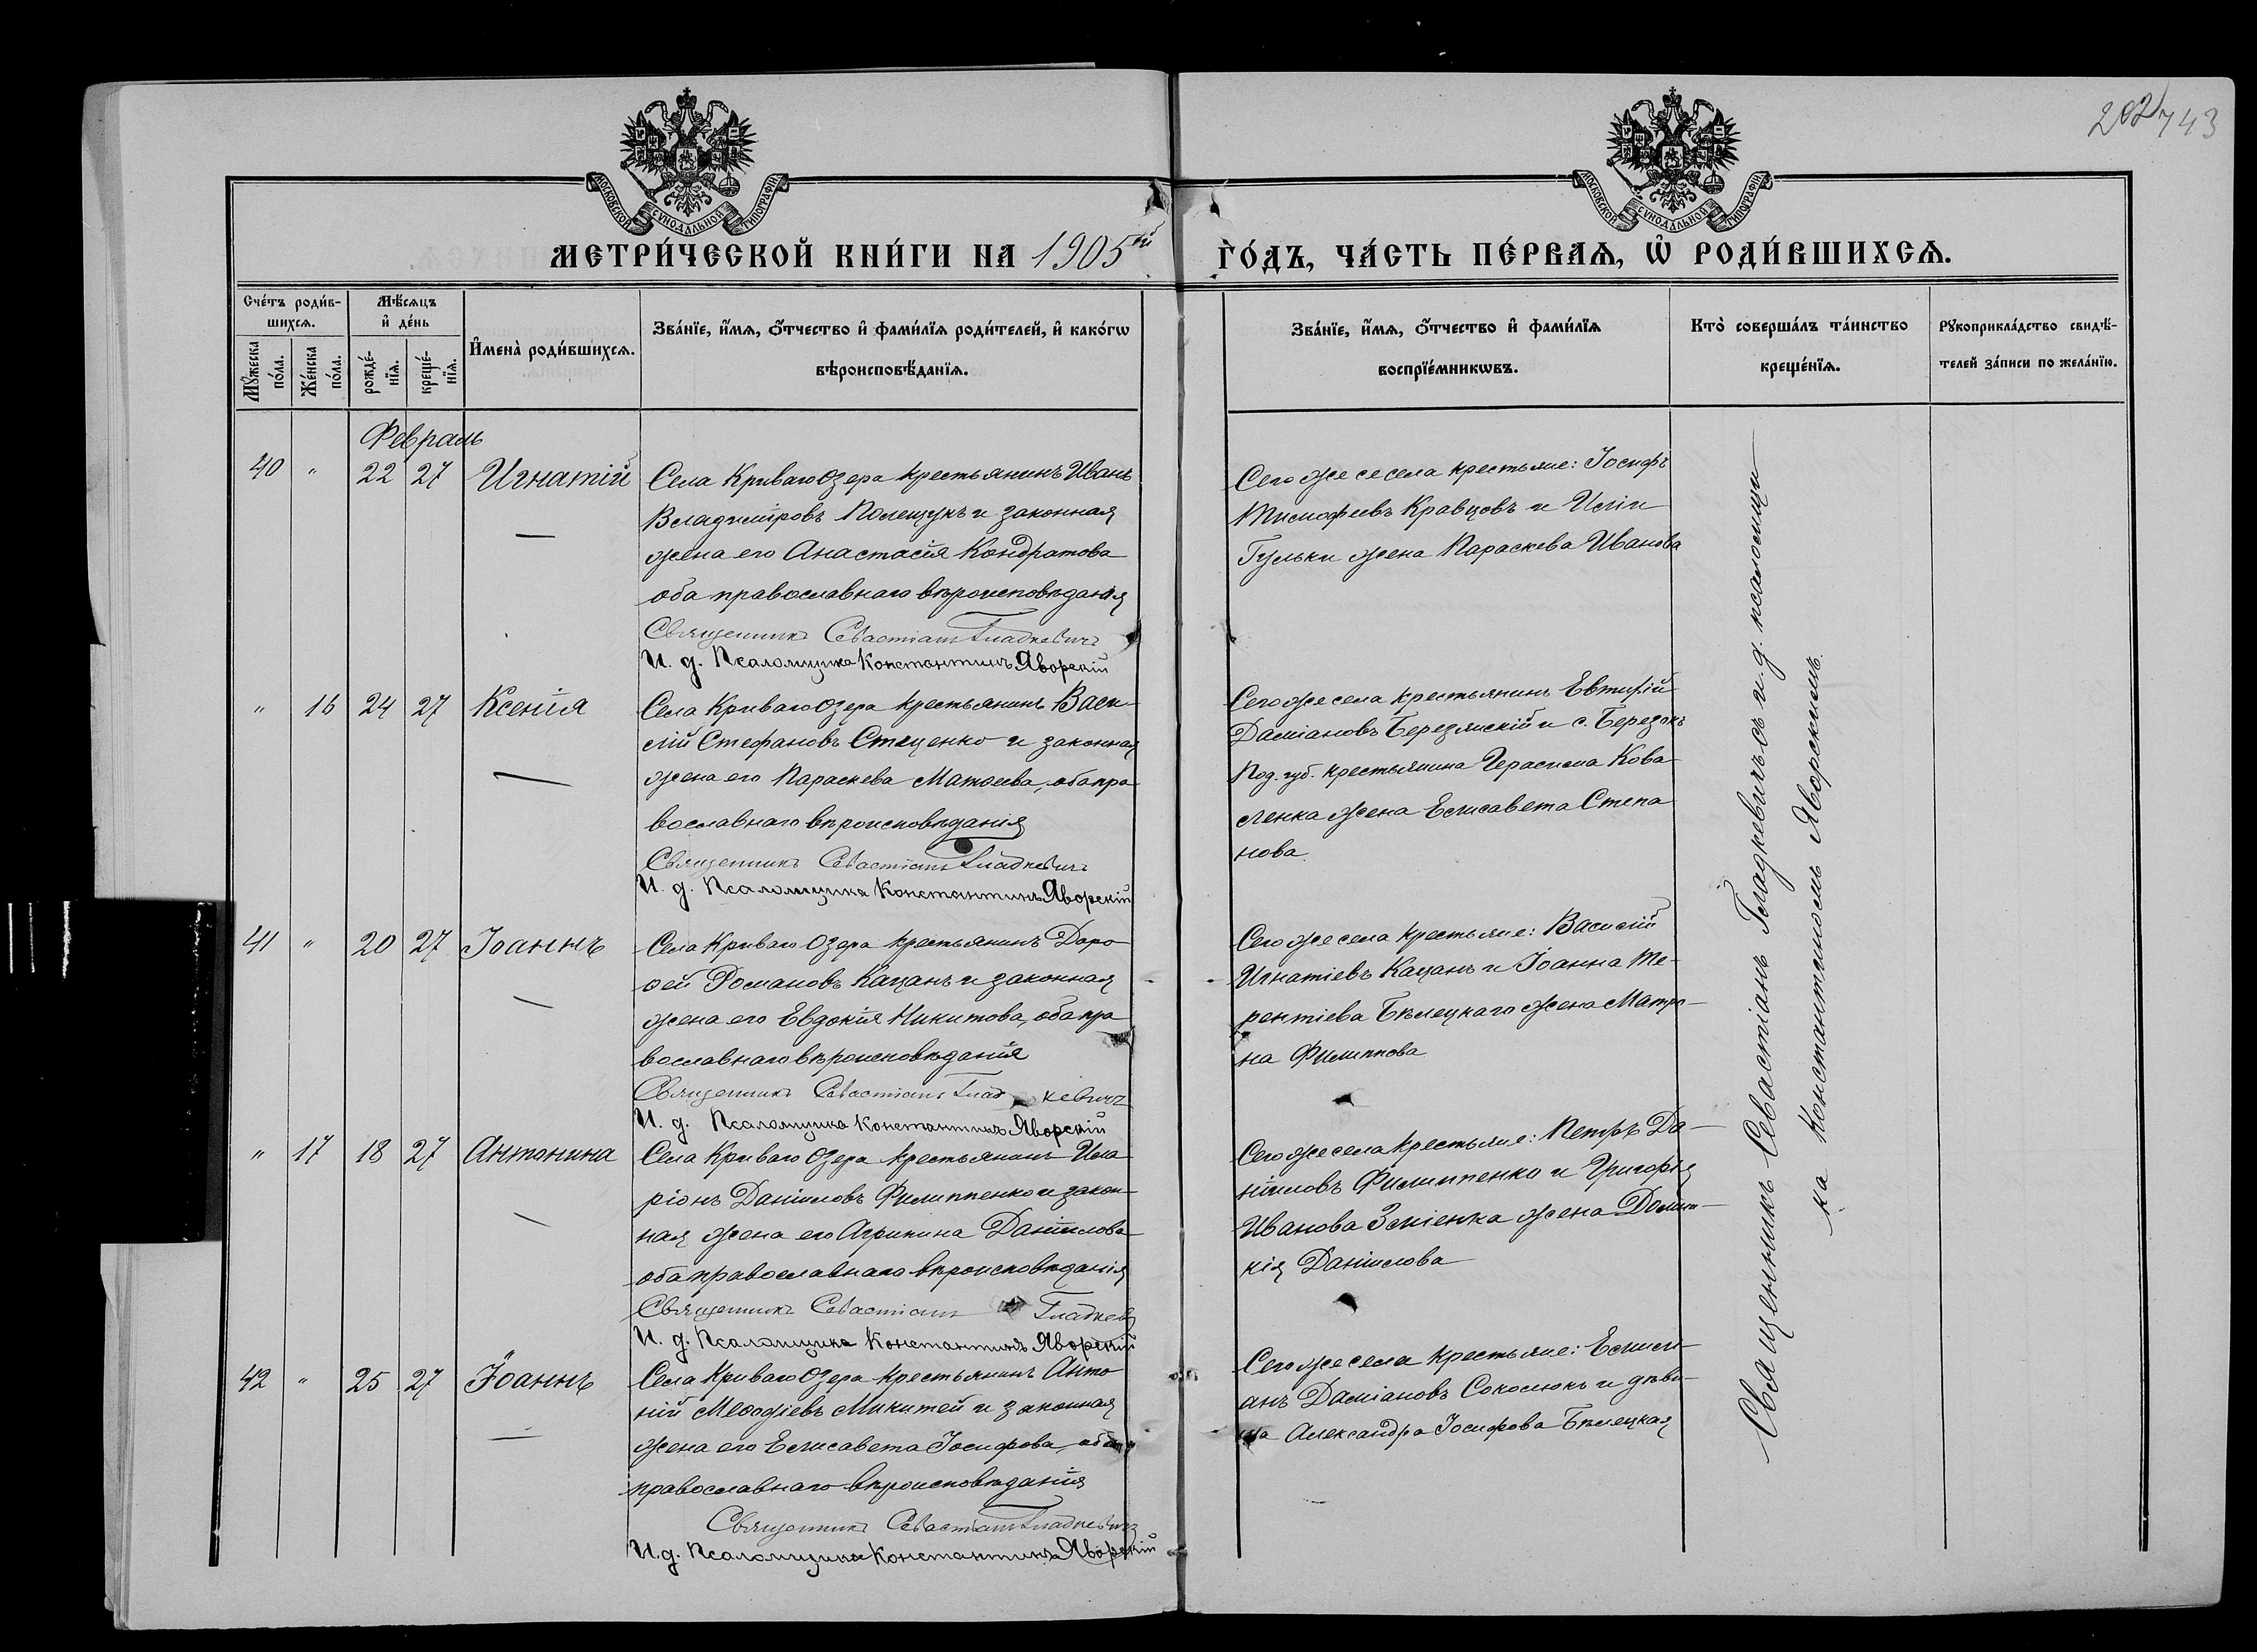 202 743
МОСКОВСКОЙ СУНОДАЛЬНОЙ ТИПОГРАФІИ
МОСКОВСКОЙ СУНОДАЛЬНОЙ ТИПОГРАФІИ
МЕТРИ́ЧЕСКОЙ КНИ́ГИ НА 1905ый
ГО́ДЪ, ЧА́СТЬ ПЕ́РВАѦ, Ѡ҆ РОДИ́ВШИХСѦ.
Сче́тъ роди́в-
шихсѧ.
Мꙋ́жеска
по́ла.
Же́нска
по́ла.
Мѣ́сѧцъ
и҆ де́нь
рожде́-
нїѧ.
креще́-
нїѧ.
И҆мена̀ роди́вшихсѧ.
Зва́нїе, и҆́мѧ, ѻ҆́тчество и҆ фами́лїѧ роди́телей, и҆ како́гѡ
вѣроисповѣ́данїѧ.
Зва́нїе, и҆́мѧ, ѻ҆́тчество и҆ фами́лїѧ
воспрїе́мникѡвъ.
Кто̀ соверша́лъ та́инство
креще́нїѧ.
Рꙋкоприкла́дство свидѣ́-
телей за́писи по жела́нїю.
Февраль
40 " 22 27 Игнатій
Села Криваго Озера крестьянинъ Иванъ
Владиміровъ Полещукъ и законная
жена его Анастасія Кондратова
оба православнаго вѣроисповѣданія
Священникъ Севастіанъ Гладкевичъ
И. д. Псаломщика Константинъ Яворскій
Сего же се села крестьяне: Іосифъ
Тимофеевъ Кравцовъ и Иліи
Гульки жена Параскева Иванова
" 16 24 27 Ксенія
Села Криваго Озера крестьянинъ Васи-
лій Стефановъ Стаценко и законная
жена его Параскева Матѳеева, оба пра
вославнаго вѣроисповѣданія
Священникъ Севастіанъ Гладкевичъ
И. д. Псаломщика Константинъ Яворскій
Сего же села крестьянинъ Евтихій
Даміановъ Березянскій и с. Березокъ
Под. губ. крестьянина Герасима Кова
ленка жена Елисавета Степа
нова.
41 " 20 27 Іоаннъ
Села Криваго Озера крестьянинъ Доро
ѳей Романовъ Кацанъ и законная
жена его Евдокія Никитова, оба пра
вославнаго вѣроисповѣданія
Священникъ Севастіанъ Гладкевичъ
И. д. Псаломщика Константинъ Яворскій
Сего же села крестьяне: Василій
Игнатіевъ Кацанъ и Іоанна Те-
рентіева Бѣлецкаго жена Матро-
на Филиппова
" 17 18 27 Антонина
Села Криваго Озера крестьянинъ Ила
ріонъ Даніиловъ Филиппенко и закон-
ная жена его Агрипина Даніилова
оба православнаго вѣроисповѣданія
Священникъ Севастіанъ Гладкев
И. д. Псаломщика Константинъ Яворскій
Сего же села крестьяне: Петръ Да-
ніиловъ Филиппенко и Григорія
Иванова Зміенка жена Доми-
кія Даніилова
42 " 25 27 Іоаннъ
Села Криваго Озера крестьянинъ Анто
ній Меѳодіевъ Микитей и законная
жена его Елисавета Іосифова, оба
православнаго вѣроисповѣданія
Священникъ Севастіанъ Гладкевичъ
И. д. Псаломщика Константинъ Яворскій
Сего же села крестьяне: Емили-
анъ Даміановъ Соколюкъ и дѣви-
ца Александра Іосифова Бѣлецкая
Священникъ Севастіанъ Гладкевичъ съ и. д. псаломщи-
ка Константиномъ Яворскимъ.